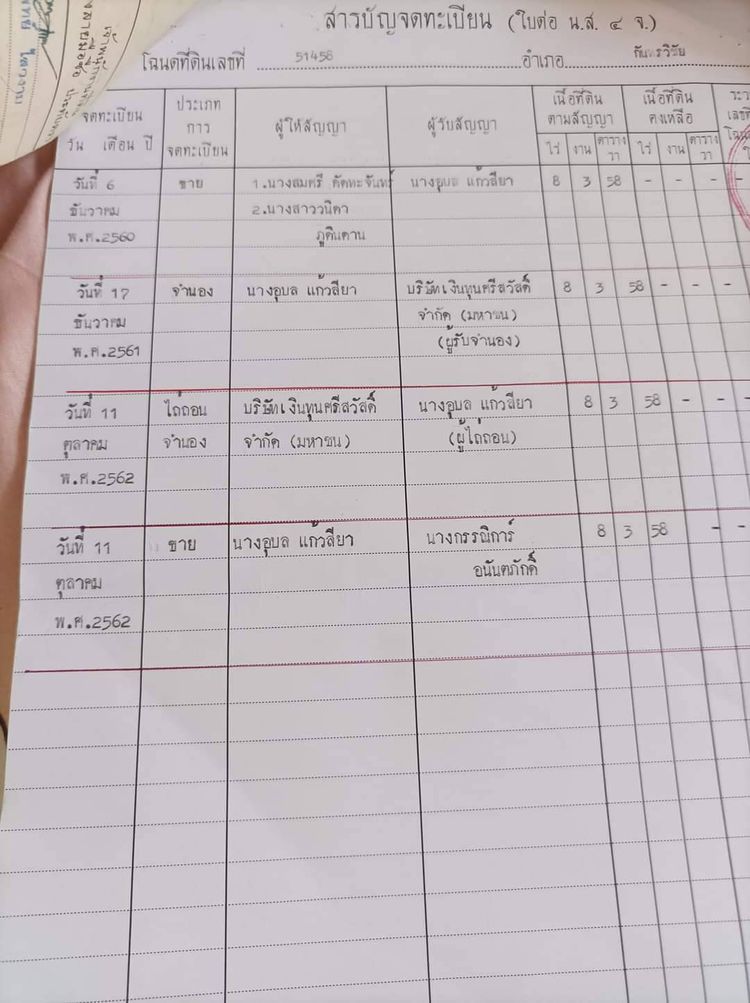 สารบัญจดทะเบียน (ใบต่อ น.ส. ๔ จ.)
โฉนดที่ดินเลขที่ 51458 อำเภอ กันทรวิชัย
จดทะเบียน
วัน เดือน ปี
ประเภท
การ
จดทะเบียน
ผู้ให้สัญญา
ผู้รับสัญญา
เนื้อที่ดิน
ตามสัญญา
ไร่ งาน ตาราง
วา
เนื้อที่ดิน
คงเหลือ
ไร่ งาน ตาราง
วา
เลขที่
วันที่ 6 ขาย 1.นางสมศรี คัดทะจันทร์ นางอุบล แก้วสียา 8 3 58 - - -
ธันวาคม 2.นางสาววนิดา
พ.ศ.2560 ภูดินดาน
วันที่ 17 จำนอง นางอุบล แก้วสียา บริษัทเงินทุนศรีสวัสดิ์ 8 3 58 - - -
ธันวาคม จำกัด (มหาชน)
พ.ศ.2561 (ผู้รับจำนอง)
วันที่ 11 ไถ่ถอน บริษัทเงินทุนศรีสวัสดิ์ นางอุบล แก้วสียา 8 3 58 - - -
ตุลาคม จำนอง จำกัด (มหาชน) (ผู้ไถ่ถอน)
พ.ศ.2562
วันที่ 11 ขาย นางอุบล แก้วสียา นางกรรณิการ์ 8 3 58 - -
ตุลาคม อนันตภักดิ์
พ.ศ.2562